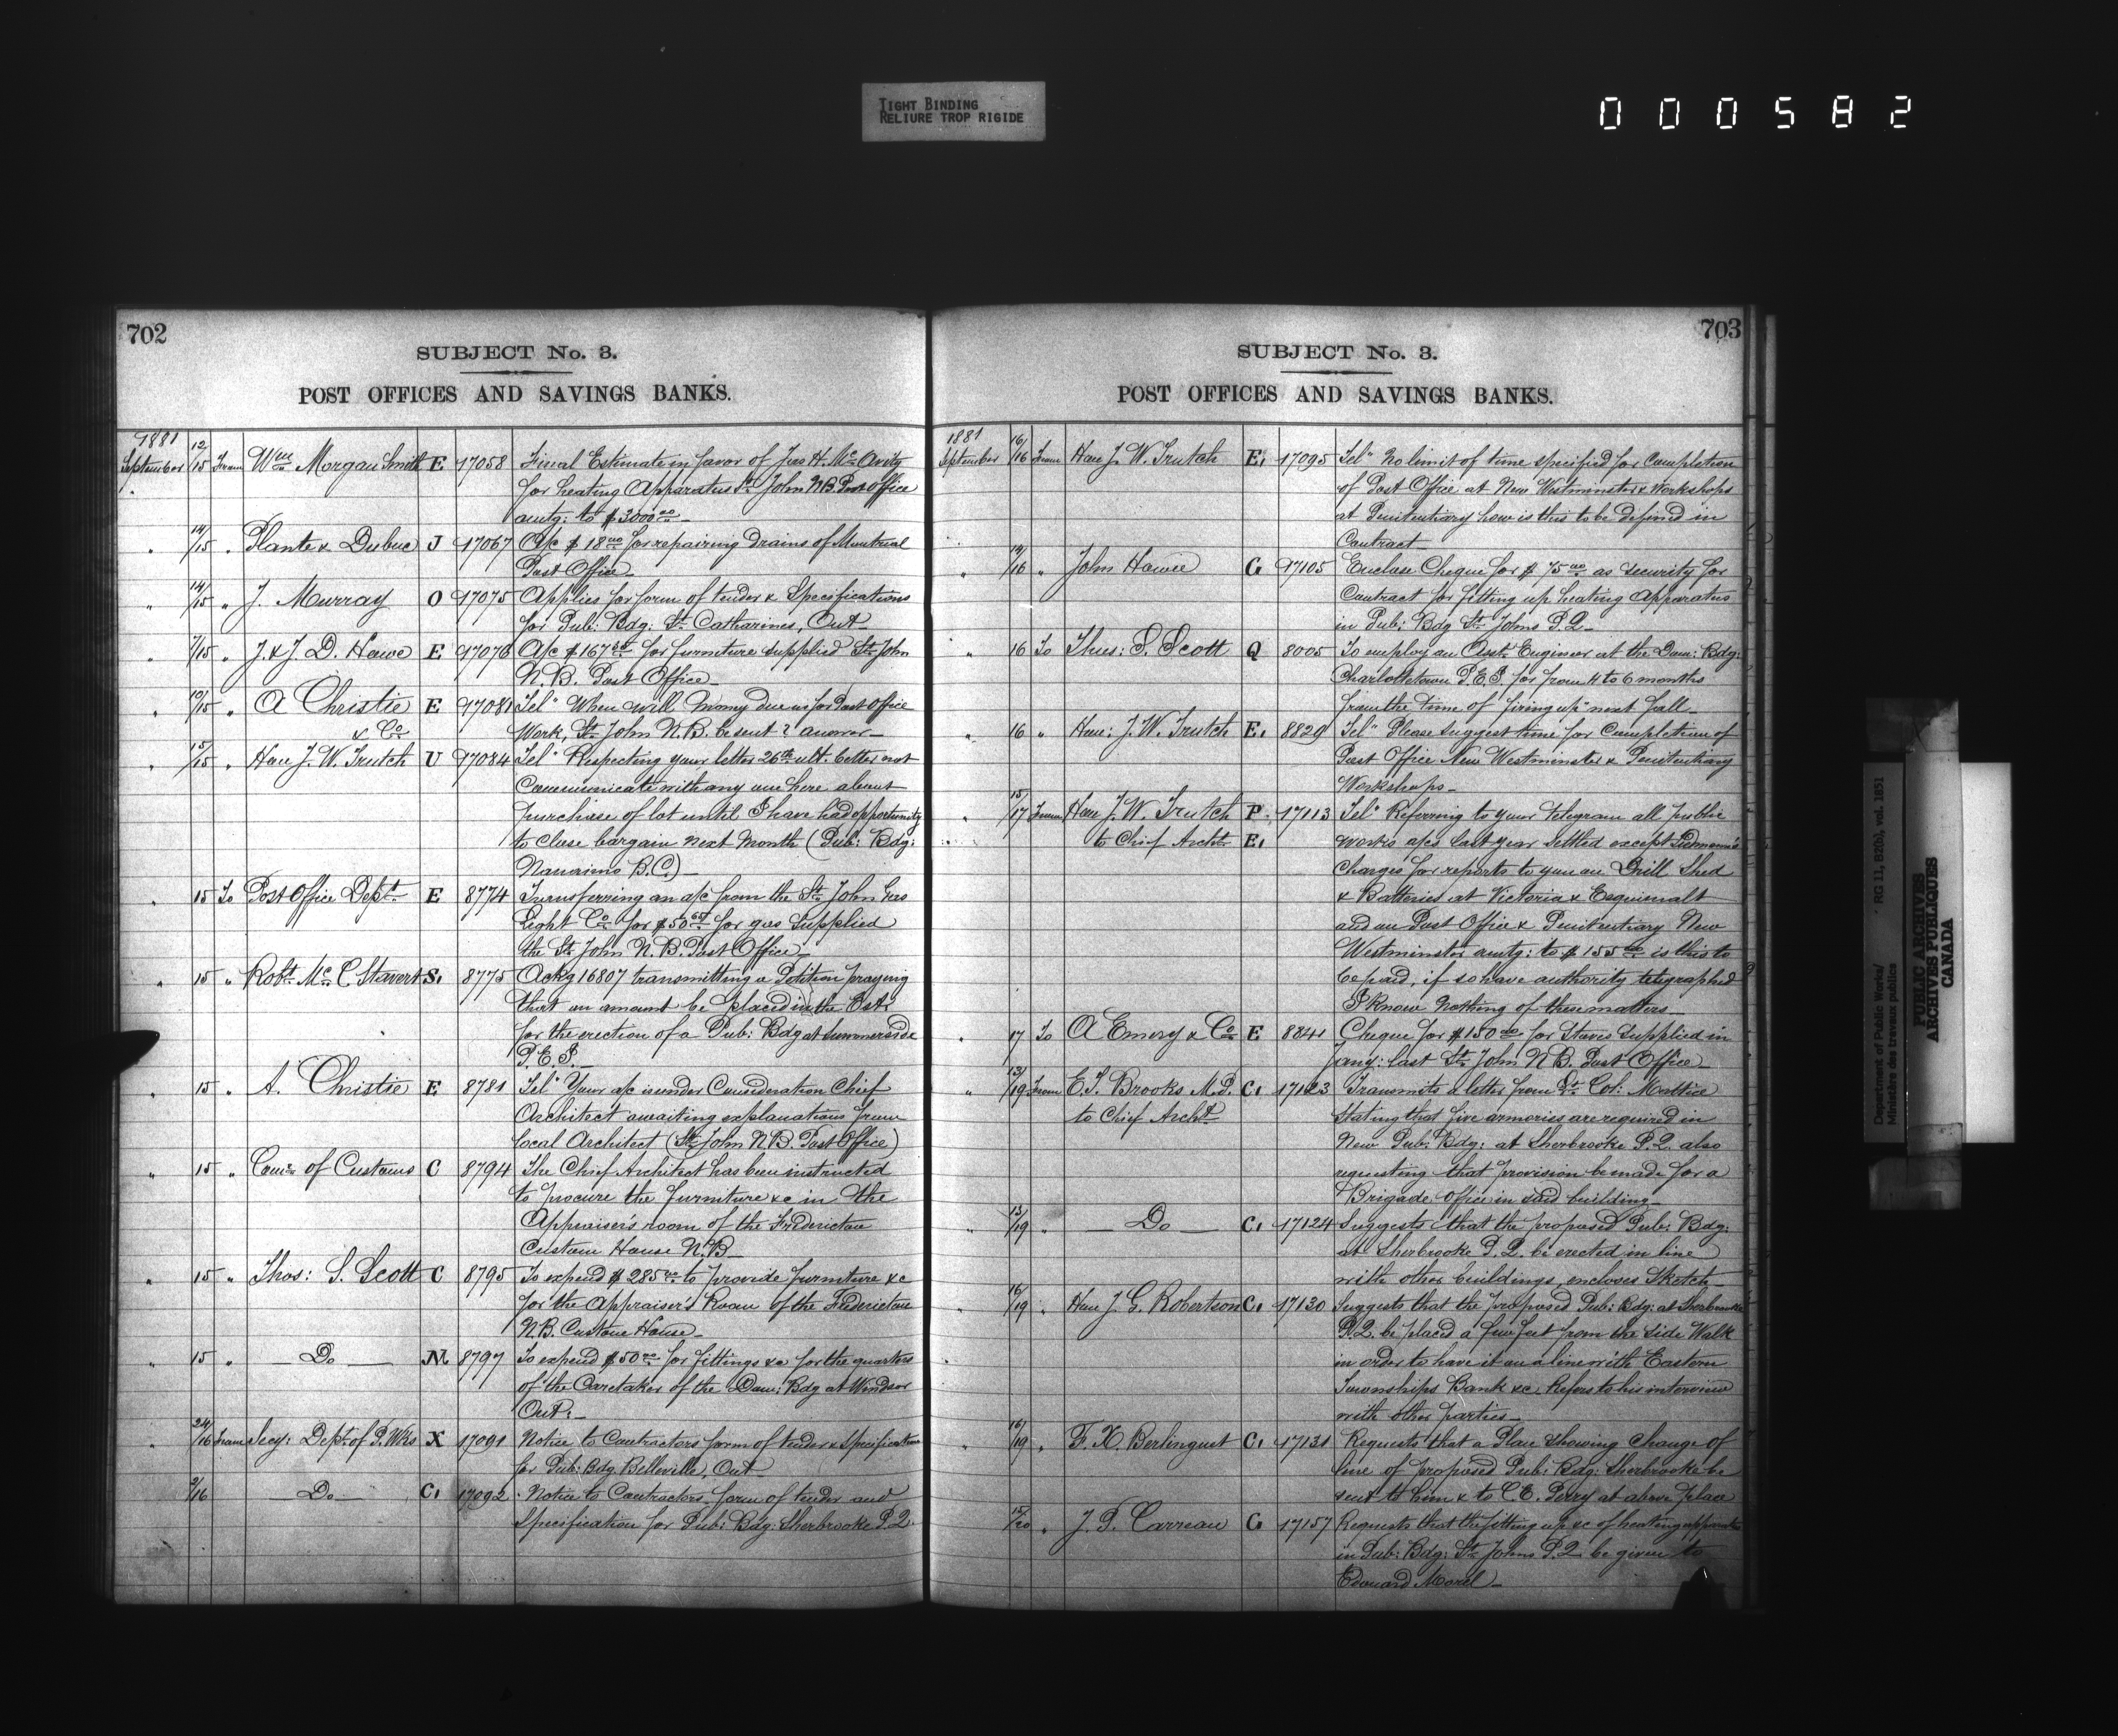 TIGHT BINDING
RELIURE TROP RIGIDE
000582
702
SUBJECT No. 3.
POST OFFICES AND SAVINGS BANKS.
1881
September 12/15 From Wm Morgan Smith E 17058 Final Estimate in favor of Jas H. McAvity
for heating Apparatus St. John N.B. Post Office
amtg: to $3000.00
" 14/15 " Plante & Dubuc J 17067 A/c $18.00 for repairing drains of Montreal
Post Office
" 14/15 " J. Murray O 17075 Applies for form of tender & Specifications
for Pub: Bdg: St. Catharines, Ont
" 7/15 " J. & J. D. Howe E 17076 A/c $167 for furniture supplied St. John
N.B. Post Office
" " A Christie E 17081 Tel" When will Money due us for Post Office
& Co Work, St. John N.B. be sent? answer
" 15/15 " Hon J. W. Trutch U 17084 Tel" Respecting your letter 26th ult. better not
Communicate with any one here about
purchase of lot until I have had opportunity
to close bargain next Month (Pub: Bdg:
Nanaimo B.C.)
" 15 To Post Office Dept. E 8774 Transferring an a/c from the St. John Gas
Light Co for $50 for gas Supplied
the St. John N.B. Post Office
" 15 " Robt. McC Stavert S. 8775 Ackg 16807 transmitting a Petition praying
that an amount be placed in the Ests
for the erection of a Pub: Bdg at Summerside
P.E.I.
" 15 " A. Christie E 8781 Tel" Your a/c is under Consideration Chief
Architect awaiting explanations from
local Architect (St. John N.B. Post Office)
" 15 " Comr. of Customs C 8794 The Chief Architect has been instructed
to procure the furniture &c in the
Appraiser's room of the Fredericton
Custom House N.B
" 15 " Thos: S. Scott C 8795 To expend $285.00 to provide furniture &c
for the Appraiser's Room of the Fredericton
N.B. Custom House
" 15 " Do M 8797 To expend $50.00 for fittings &c for the quarters
of the Caretaker of the Dom: Bdg at Windsor
Ont:
" 24/16 From Secy: Dept. of P. Wks X 17091 Notice to Contractors form of tender & Specification
for Pub: Bdg Belleville, Ont
/16 Do C. 17092 Notice to Contractors form of tender and
Specification for Pub: Bdg: Sherbrooke P.Q.
703
SUBJECT No. 3.
POST OFFICES AND SAVINGS BANKS.
1881
September 16/16 From Hon J. W. Trutch E. 17095 Tel" No limit of time specified for Completion
of Post Office at New Westminster & Workshops
at Penitentiary how is this to be defined in
Contract
" 14/16 " John Howie G 17105 Enclose Cheque for $75.00 as security for
Contract for fitting up heating Apparatus
in Pub: Bdg St. Johns P.Q
" 16 To Thos: S. Scott Q 8005 To employ an Asst. Engineer at the Dom: Bdg:
Charlottetown P.E.I. for from 4 to 6 months
from the time of "firing up" next fall
" 16 " Hon: J. W. Trutch E. 8829 Tel" Please suggest time for Completion of
Post Office New Westminster & Penitentiary
Workshops
" 15/17 From Hon J. W. Trutch P. 17113 Tel" Referring to your telegram all public
to Chief Archt. E. works a/cs last year settled except
Charges for reports to you on Drill Shed
& Batteries at Victoria & Esquimalt
and on Post Office & Penitentiary New
Westminster amtg: to $155.00 is this to
be paid, if so have authority telegraphed
I know nothing of these matters
" 17 To A Emery & Co E 8841 Cheque for $150.00 for Stoves Supplied in
Jany: last St. John N.B. Post Office
" 13/19 From E. T. Brooks M.P. C. 17123 Transmits a letter from Lt. Col: Mattice
to Chief Archt. Stating that five armories are required in
New Pub: Bdg: at Sherbrooke P.Q. also
requesting that provision be made for a
Brigade office in said building
" 13/19 " Do C. 17124 Suggests that the proposed Pub: Bdg:
at Sherbrooke P.Q. be erected in line
with other buildings, encloses Sketch
" 16/19 " Hon J. G. Robertson C. 17130 Suggests that the proposed Pub: Bdg: at Sherbrooke
P.Q. be placed a few feet from the Side Walk
in order to have it on a line with Eastern
Townships Bank &c Refers to his interview
with other parties
" 16/19 " F. X. Berlinguet C. 17131 Requests that a Plan showing change of
line of proposed Pub: Bdg: Sherbrooke be
sent to him & to C.E. Perry at above place
15/20 " J. P. Carreau G 17157 Requests that the fitting up &c of heating apparatus
in Pub: Bdg: St. Johns P.Q. be given to
Edouard Morel
Department of Public Works/ RG 11, B2(b), vol. 1851
Ministère des travaux publics
PUBLIC ARCHIVES
ARCHIVES PUBLIQUES
CANADA